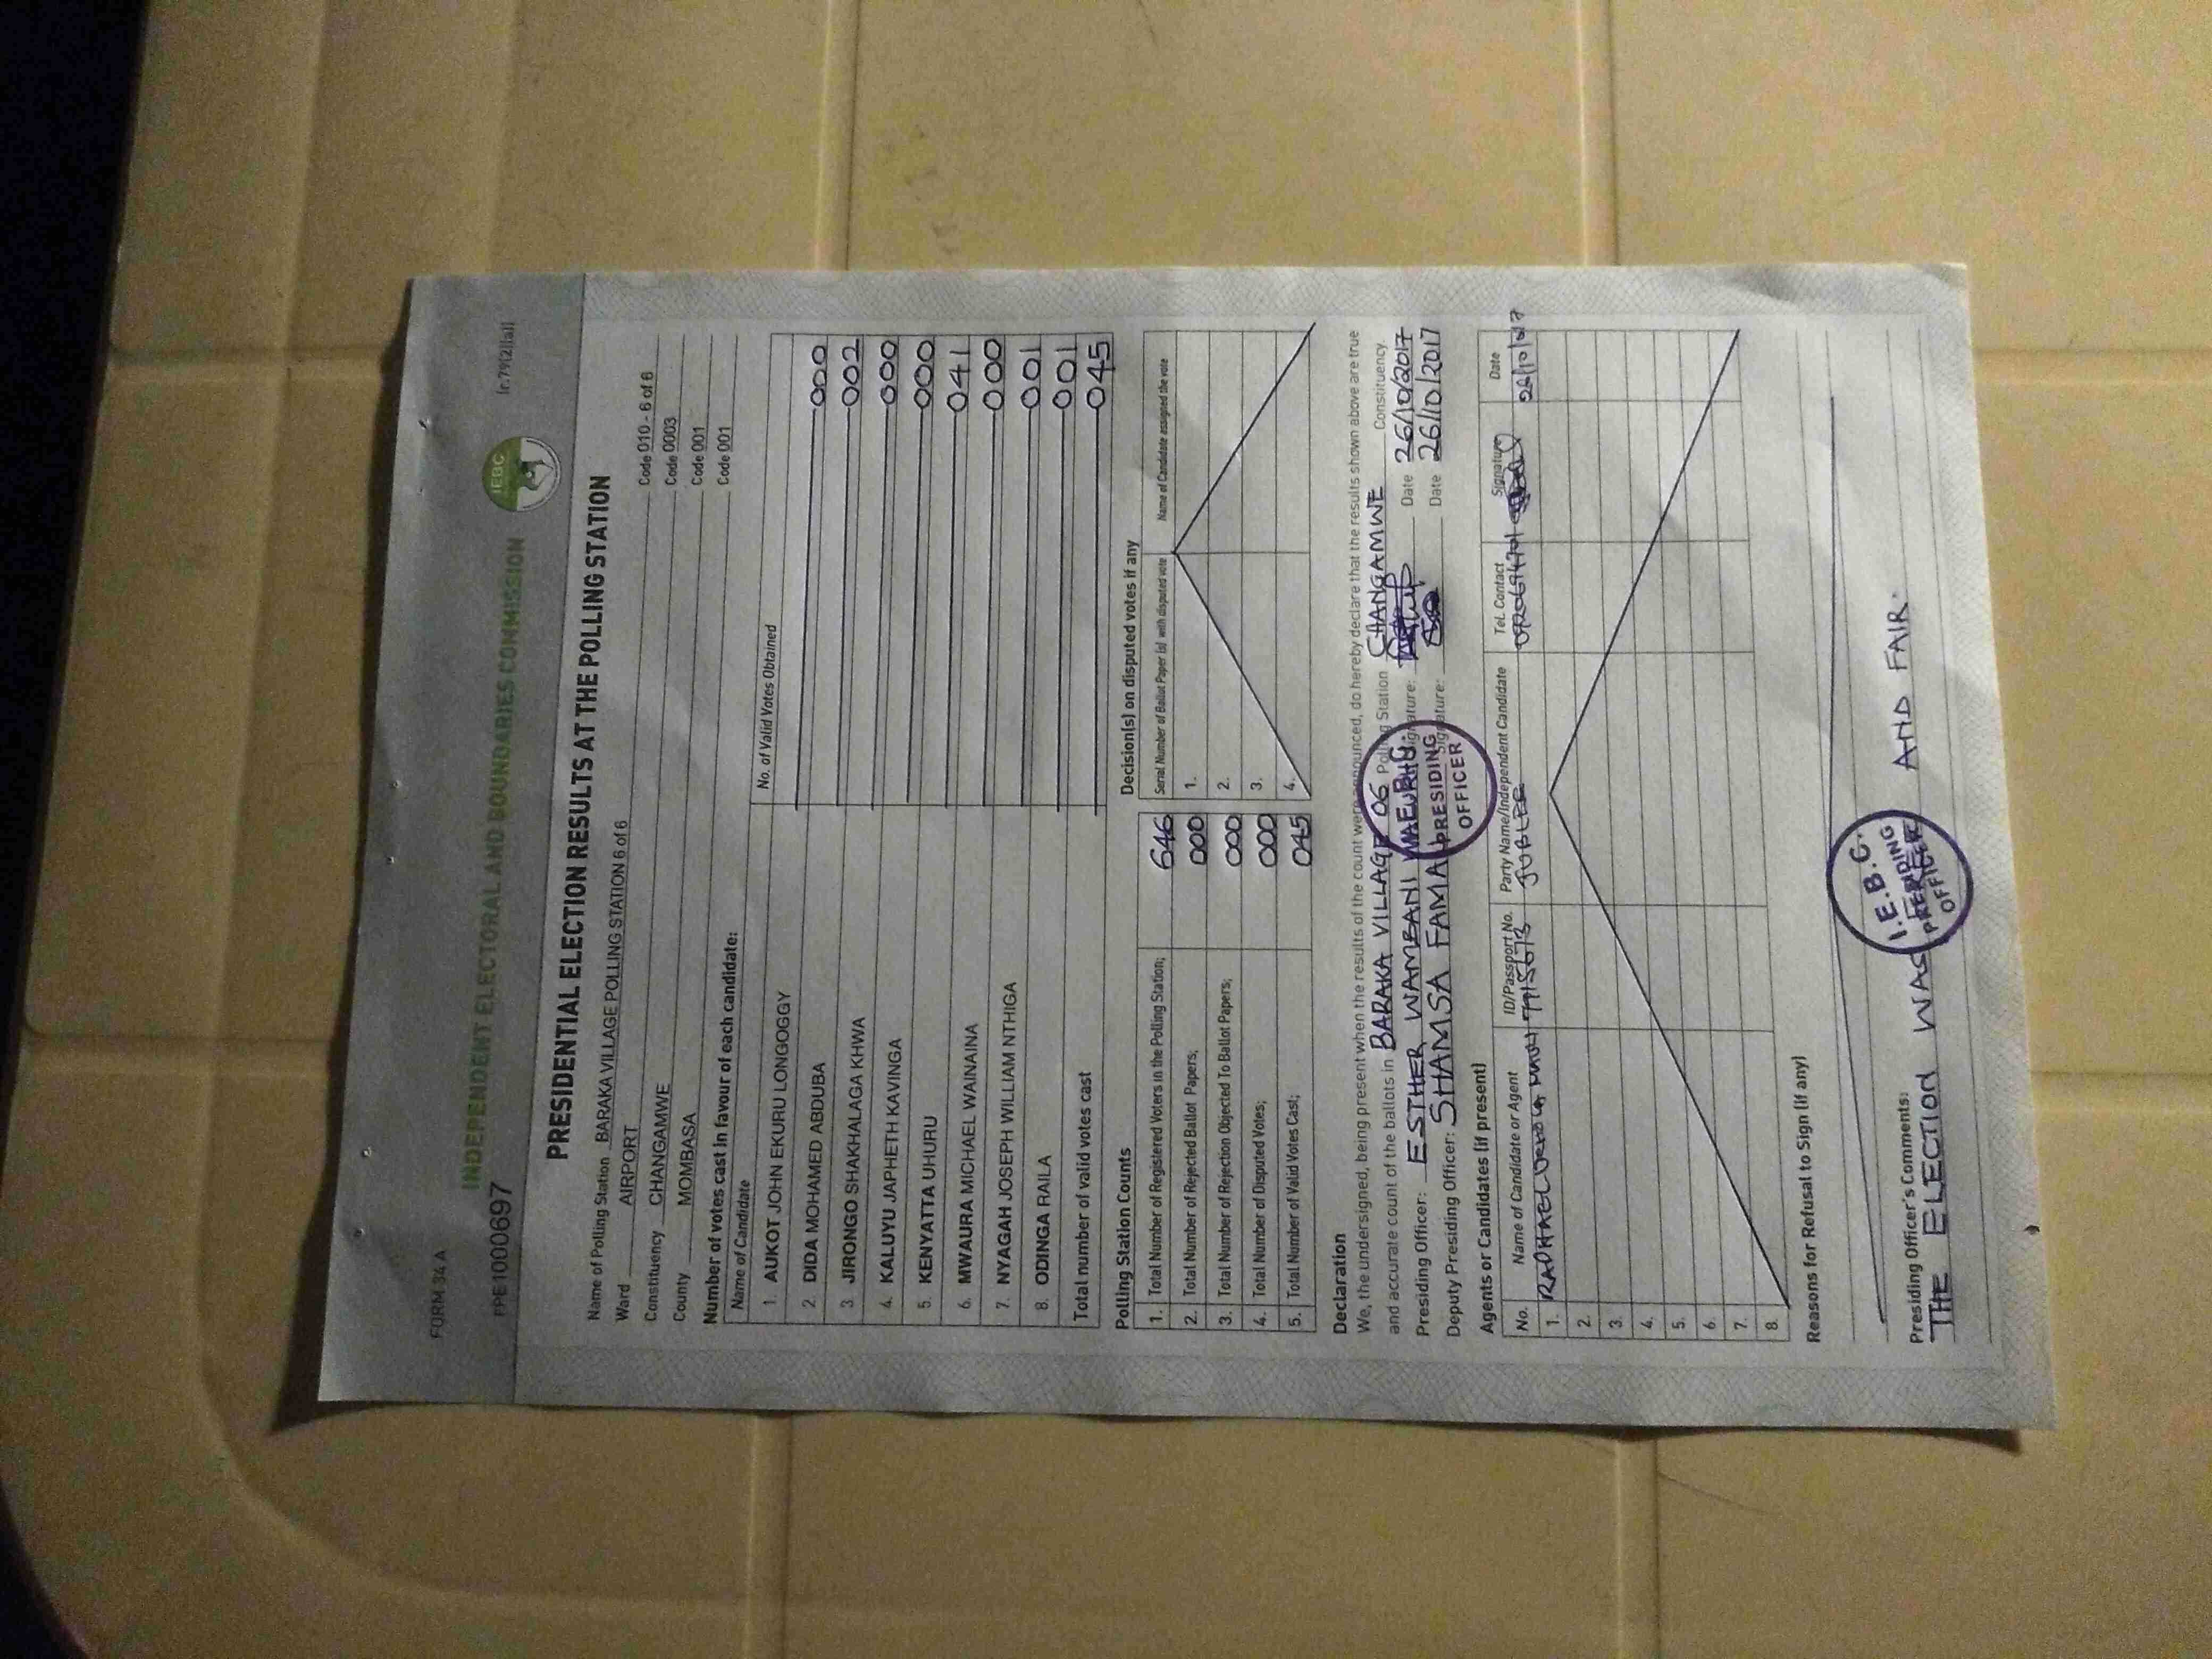 FORM 34 A
(r.79(2)(a))
INDEPENDENT ELECTORAL AND BOUNDARIES COMMISSION
IEBC
PPE1000697
PRESIDENTIAL ELECTION RESULTS AT THE POLLING STATION
Name of Polling Station BARAKA VILLAGE POLLING STATION 6 of 6 Code 010 - 6 of 6
Ward AIRPORT Code 0003
Constituency CHANGAMWE Code 001
County MOMBASA Code 001
Number of votes cast in favour of each candidate:
Name of Candidate No. of Valid Votes Obtained
1. AUKOT JOHN EKURU LONGOGGY 000
2. DIDA MOHAMED ABDUBA 002
3. JIRONGO SHAKHALAGA KHWA 000
4. KALUYU JAPHETH KAVINGA 000
5. KENYATTA UHURU 041
6. MWAURA MICHAEL WAINAINA 000
7. NYAGAH JOSEPH WILLIAM NTHIGA 001
8. ODINGA RAILA 001
Total number of valid votes cast 045
Polling Station Counts
1. Total Number of Registered Voters in the Polling Station; 646
2. Total Number of Rejected Ballot Papers; 000
3. Total Number of Rejection Objected To Ballot Papers; 000
4. Total Number of Disputed Votes; 000
5. Total Number of Valid Votes Cast; 045
Decision(s) on disputed votes if any
Serial Number of Ballot Paper (s) with disputed vote Name of Candidate assigned the vote
1.
2.
3.
4.
Declaration
We, the undersigned, being present when the results of the count were announced, do hereby declare that the results shown above are true
and accurate count of the ballots in BARAKA VILLAGE 06 Polling Station CHANGAMWE Constituency.
Presiding Officer: ESTHER WAMBANI Signature: Date 26/10/2017
Deputy Presiding Officer: SHAMSA FAMA Signature: Date 26/10/2017
I.E.B.C.
PRESIDING
OFFICER
Agents or Candidates (if present)
No. Name of Candidate or Agent ID/Passport No. Party Name/Independent Candidate Tel. Contact Signature Date
1. RAPHAEL JUBLEE 26/10/2017
2.
3.
4.
5.
6.
7.
8.
Reasons for Refusal to Sign (if any)
Presiding Officer's Comments:
THE ELECTION WAS AND FAIR.
I.E.B.C.
PRESIDING
OFFICER